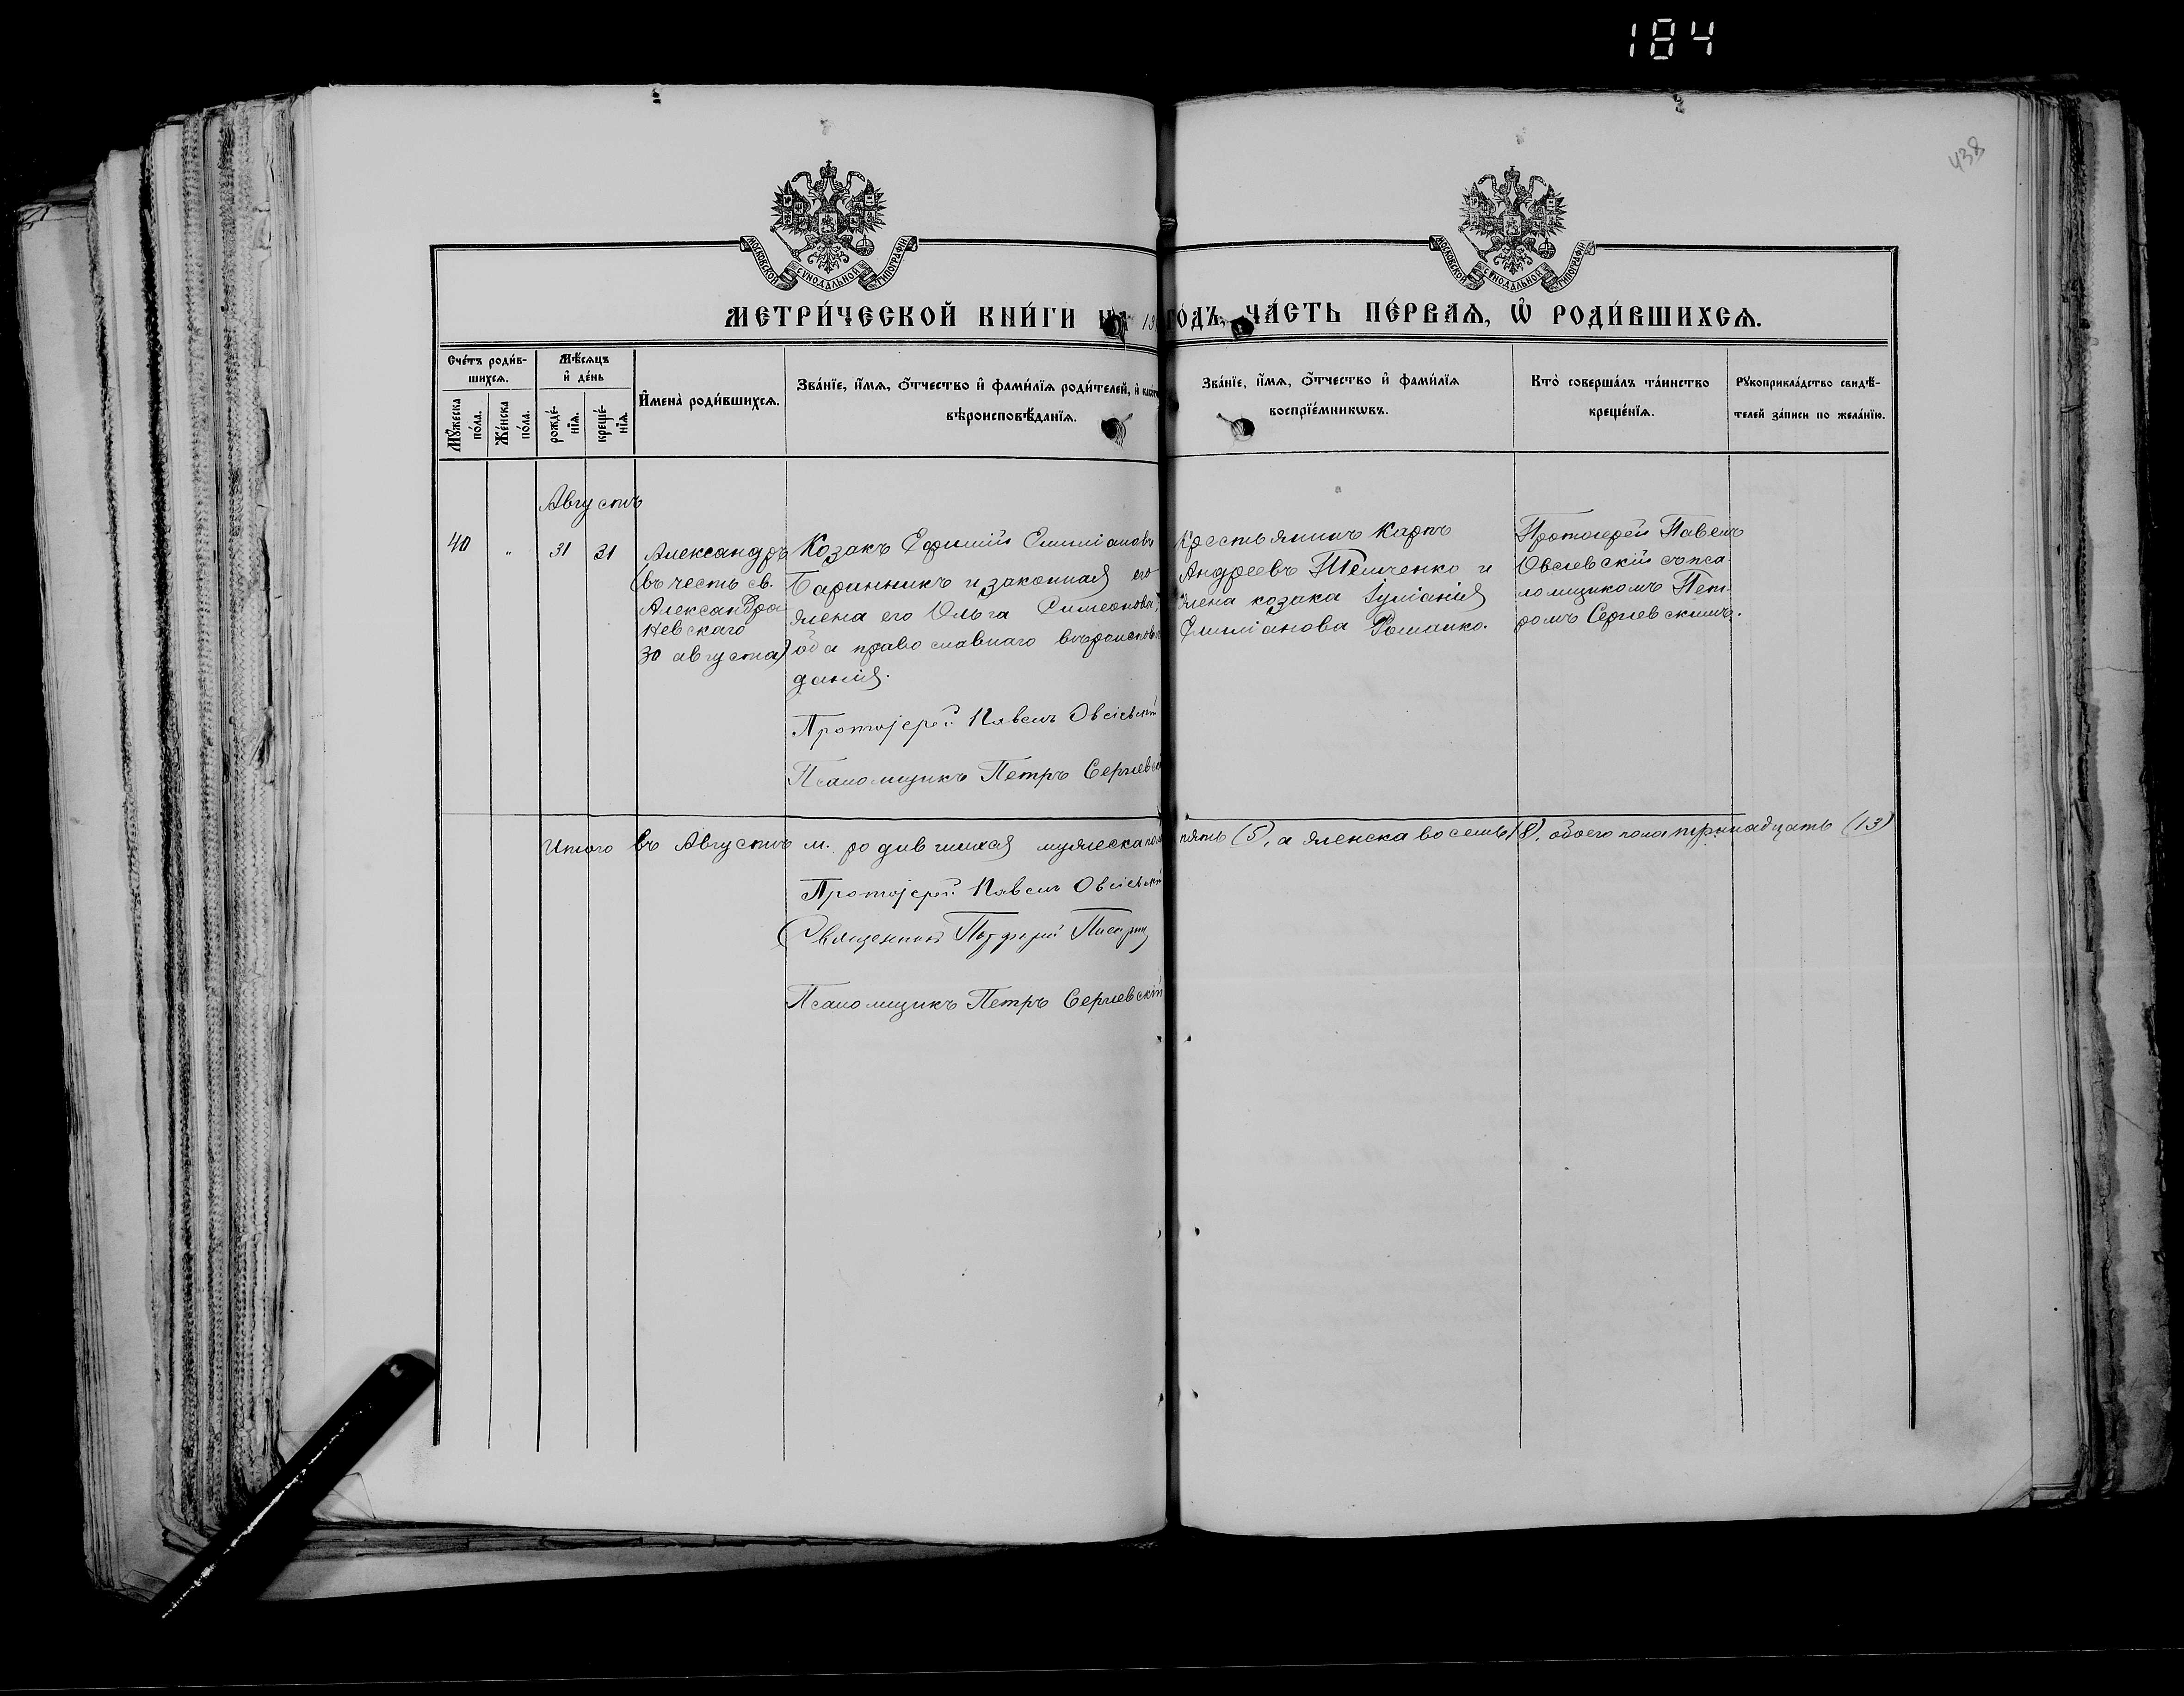 184
438
МОСКОВСКОЙ СѴНОДАЛЬНОЙ ТИПОГРАФІИ
МОСКОВСКОЙ СѴНОДАЛЬНОЙ ТИПОГРАФІИ
МЕТРИ́ЧЕСКОЙ КНИ́ГИ НА 19 ГО́ДЪ, ЧА́СТЬ ПЕ́РВАѦ, Ѽ РОДИ́ВШИХСѦ.
Сче́тъ роди́в-
шихсѧ.
Мꙋ́жеска по́ла.
Же́нска по́ла.
Мѣ́сѧцъ
и҆ де́нь
рожде́-нїѧ.
креще́-нїѧ.
И҆мена̀ роди́вшихсѧ.
Зва́нїе, и҆́мѧ, ѻ҆́тчество и҆ фами́лїѧ роди́телей, и҆
вѣроисповѣ́данїѧ.
Зва́нїе, и҆́мѧ, ѻ҆́тчество и҆ фами́лїѧ
воспрїе́мникѡвъ.
Кто̀ соверша́лъ та́инство
креще́нїѧ.
Рꙋкоприкла́дство свидѣ́-
телей за́писи по жела́нїю.
Августъ
40 " 31 31
Александръ
(въ честь св.
Александра
Невскаго
30 августа)
Козакъ Ефимій Емиліановъ
Баранникъ и законная его
жена его Ольга Симеонова,
оба православнаго вѣроисповѣ
данія.
Протоіерей Павелъ Овсіевскій
Псаломщикъ Петръ Сергіевскій
Крестьянинъ Карпъ
Андреевъ Темченко и
жена козака Іуліанія
Емиліанова Романко.
Протоіерей Павелъ
Овсіевскій съ пса-
ломщикомъ Пет-
ромъ Сергіевскимъ.
Итого въ Августѣ м. родившихся мужеска пола пять (5), а женска восемь (8), обоего пола тринадцать (13)
Протоіерей Павелъ Овсіевскій
Священникъ
Псаломщикъ Петръ Сергіевскій